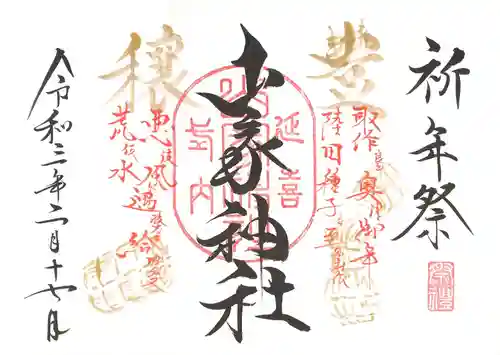 祈年祭
豊穣
取作 奥津御年
陸田種子 至
山家神社
延喜
式内
悪風
荒水 遇 給
令和三年二月十七日